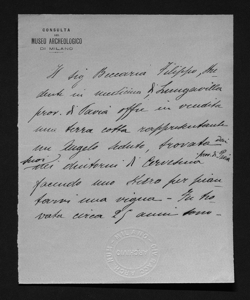 CONSULTA
DEL
MUSEO ARCHEOLOGICO
DI MILANO
Il Sig Beccaria Filippo, stu
dente in medicina, di Lungavilla
prov. di Pavia offre in vendita
una terra cotta rappresentante
un Angelo seduto, trovata
dei dintorni di Cervesina
prov. di Pavia
facendo uno per pian
tarvi una vigna - Tro
vata circa 25 anni